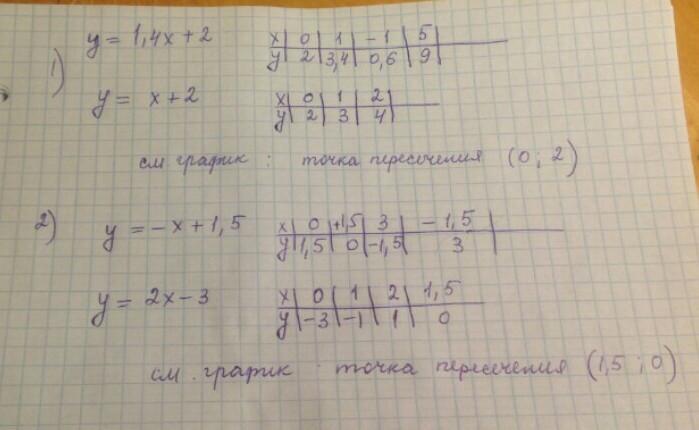 1) y = 1,4x + 2 x | 0 | 1 | -1 | 5
y | 2 | 3,4 | 0,6 | 9
y = x + 2 x | 0 | 1 | 2
y | 2 | 3 | 4
см график : точка пересечения (0 ; 2)
2) y = -x + 1,5 x | 0 | +1,5 | 3 | -1,5
y | 1,5 | 0 | -1,5 | 3
y = 2x - 3 x | 0 | 1 | 2 | 1,5
y | -3 | -1 | 1 | 0
см. график точка пересечения (1,5 ; 0)